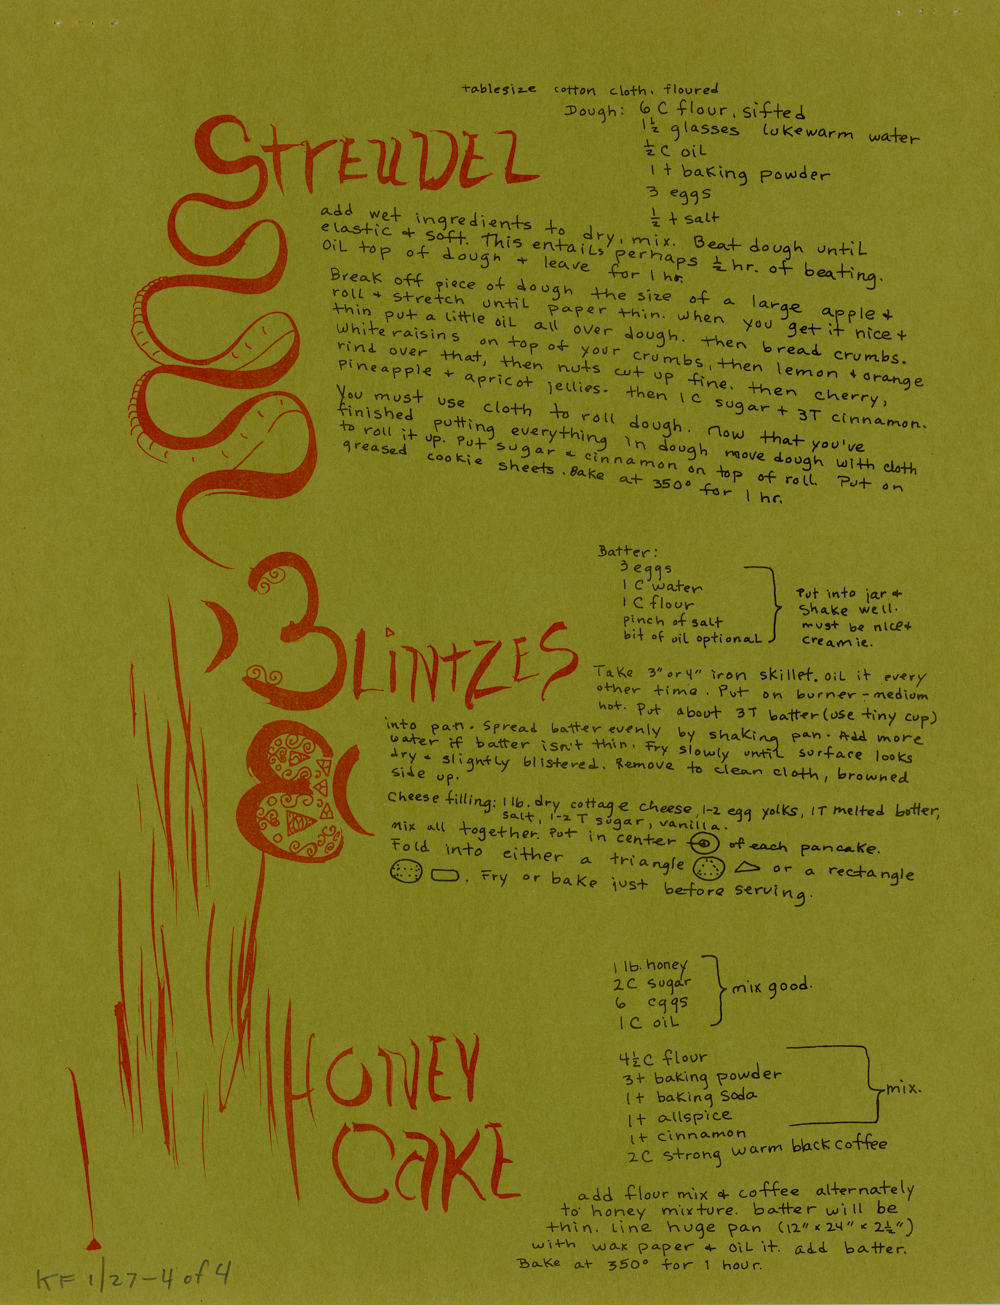 tablesize cotton cloth, floured
Dough: 6 C flour, sifted
1½ glasses lukewarm water
½ C oil
1 t baking powder
3 eggs
½ t salt
STREUDEL
add wet ingredients to dry, mix. Beat dough until
elastic + soft. This entails perhaps ½ hr. of beating.
Oil top of dough + leave for 1 hr.
Break off piece of dough the size of a large apple +
roll + stretch until paper thin. When you get it nice +
thin put a little oil all over dough. then bread crumbs.
White raisins on top of your crumbs, then lemon + orange
rind over that, then nuts cut up fine. then cherry,
pineapple + apricot jellies. then 1 C sugar + 3T cinnamon.
You must use cloth to roll dough. Now that you've
finished putting everything in dough move dough with cloth
to roll it up. Put sugar + cinnamon on top of roll. Put on
greased cookie sheets. Bake at 350° for 1 hr.
Batter:
3 eggs
1 C water
1 C flour
pinch of salt
bit of oil optional
Put into jar +
Shake well.
must be nice +
creamie.
BLINTZES
Take 3" or 4" iron skillet. oil it every
other time. Put on burner - medium
hot. Put about 3T batter (use tiny cup)
into pan. Spread batter evenly by shaking pan. Add more
water if batter isn't thin. Fry slowly until surface looks
dry + slightly blistered. Remove to clean cloth, browned
side up.
Cheese filling: 1 lb. dry cottage cheese, 1-2 egg yolks, 1T melted butter,
salt, 1-2 T sugar, vanilla.
mix all together. Put in center of each pancake.
Fold into either a triangle or a rectangle
. Fry or bake just before serving.
1 lb. honey
2C sugar
6 eggs
1 C oil
mix good.
4½C flour
3t baking powder
1t baking soda
1t allspice
1t cinnamon
2C strong warm black coffee
mix.
HONEY
CAKE
add flour mix + coffee alternately
to honey mixture. batter will be
thin. line huge pan (12" x 24" x 2½")
with wax paper + oil it. add batter.
Bake at 350° for 1 hour.
KF 1/27-4 of 4